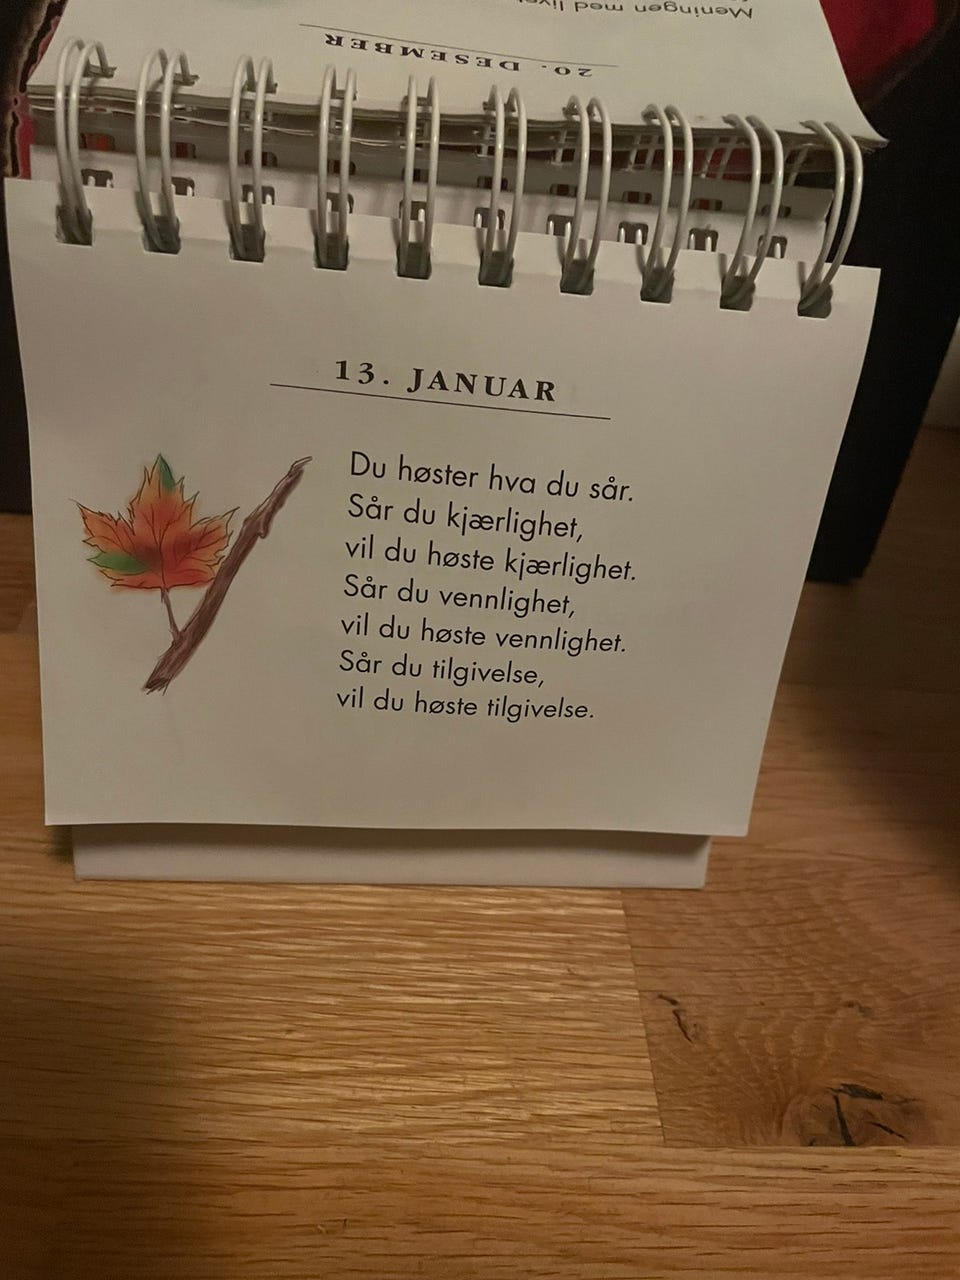 Meningen med livet
20. DESEMBER
13. JANUAR
Du høster hva du sår.
Sår du kjærlighet,
vil du høste kjærlighet.
Sår du vennlighet,
vil du høste vennlighet.
Sår du tilgivelse,
vil du høste tilgivelse.